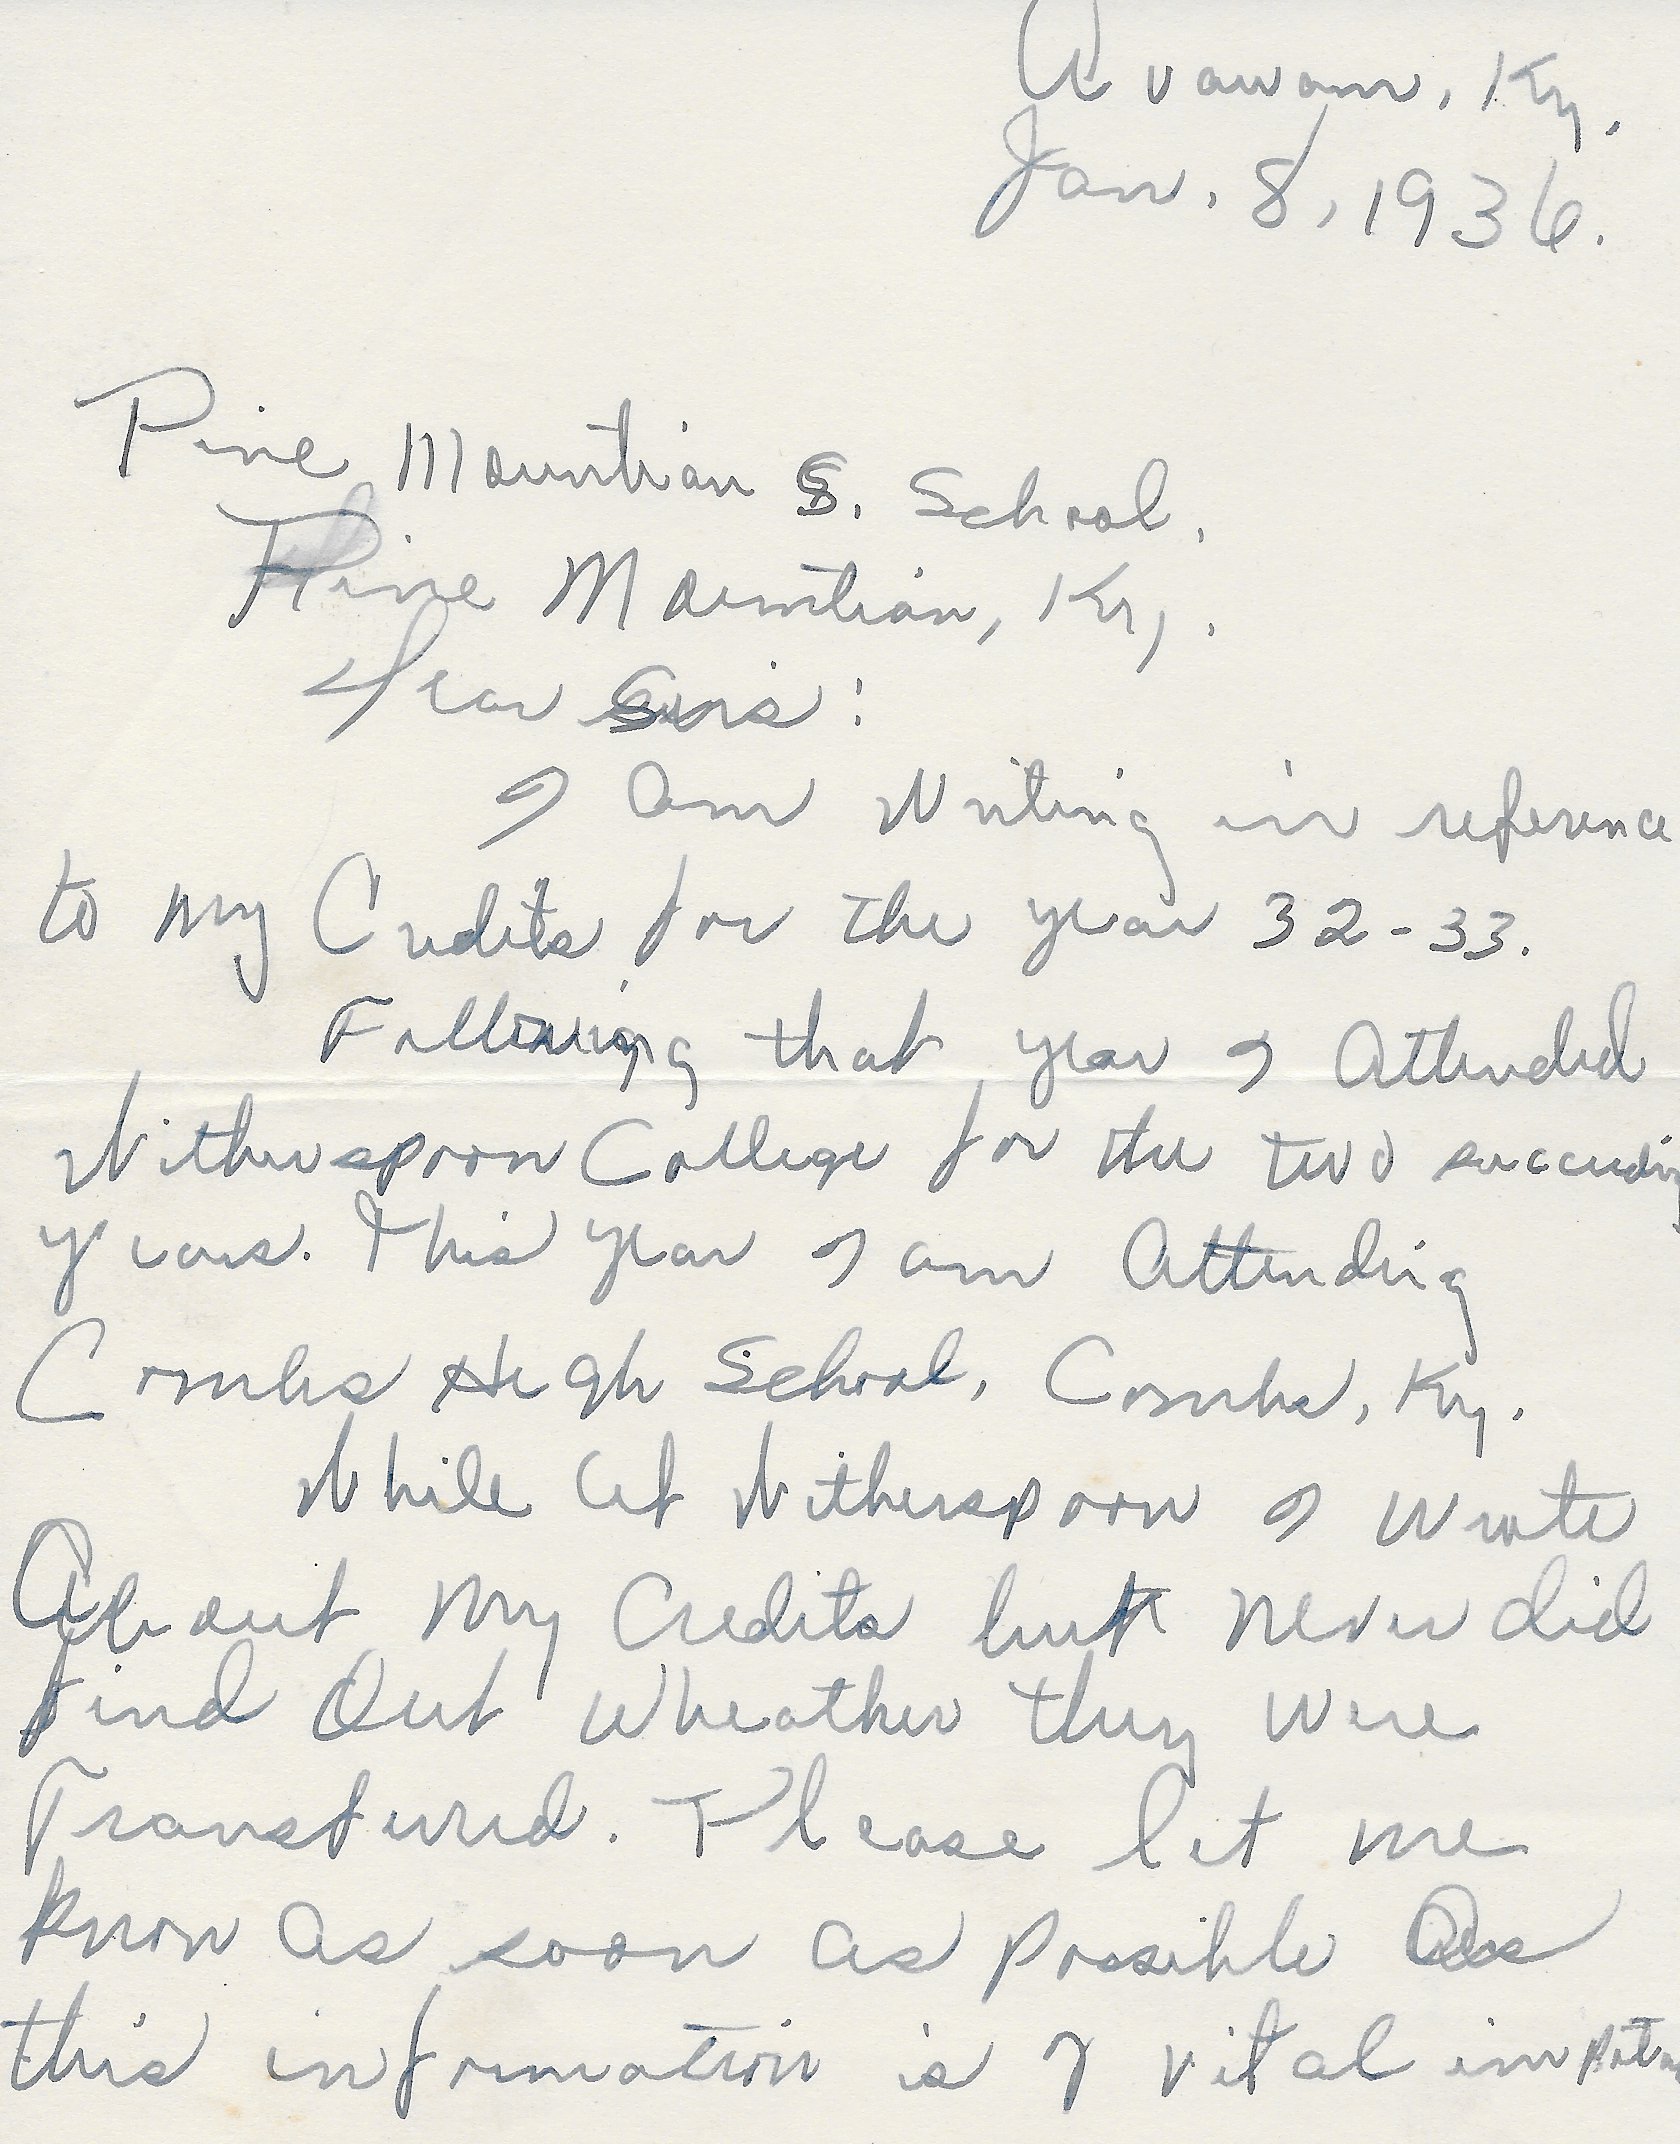 Avawam, Ky.
Jan. 8, 1936.
Pine Mountian S. School,
Pine Mountian, Ky.
Dear Sirs:
I am Writing in reference
to my Credits for the year 32-33.
Following that year I attended
Witherspoon College for the two succeeding
years. This year I am Attending
Combs High School, Combs, Ky.
While at Witherspoon I wrote
About my Credits but never did
find Out wheather they were
Transfured. Please let me
know as soon as possible As
this information is of vital